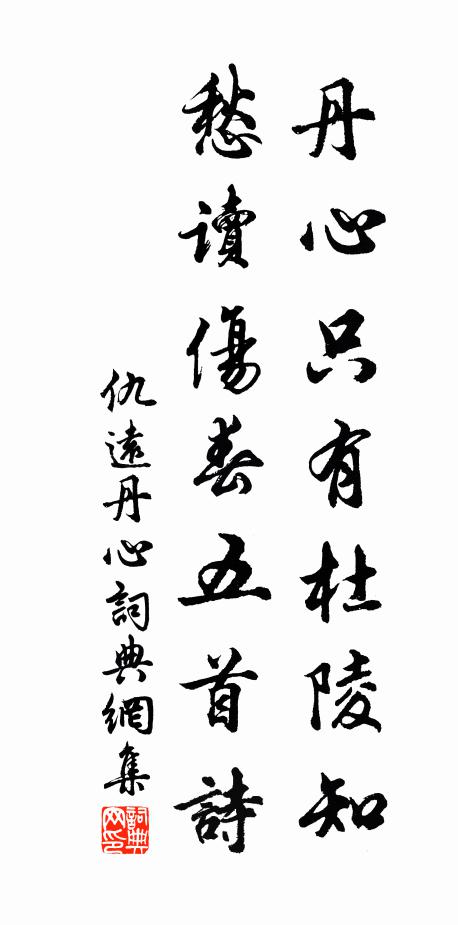 丹心只有杜陵知
愁讀傷春五首詩
仇遠丹心詞典網集
詞典网印